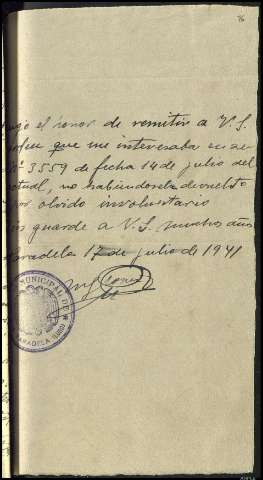 el honor de remitir a V.S.
que me interesaba en su
Nº 3559 de fecha 14 de julio del
actual, no habiéndosela devuelto
por olvido involuntario
guarde a V.S. muchos años
Paradela 17 de julio de 1941
MUNICIPAL DE
PARADELA (LUGO)